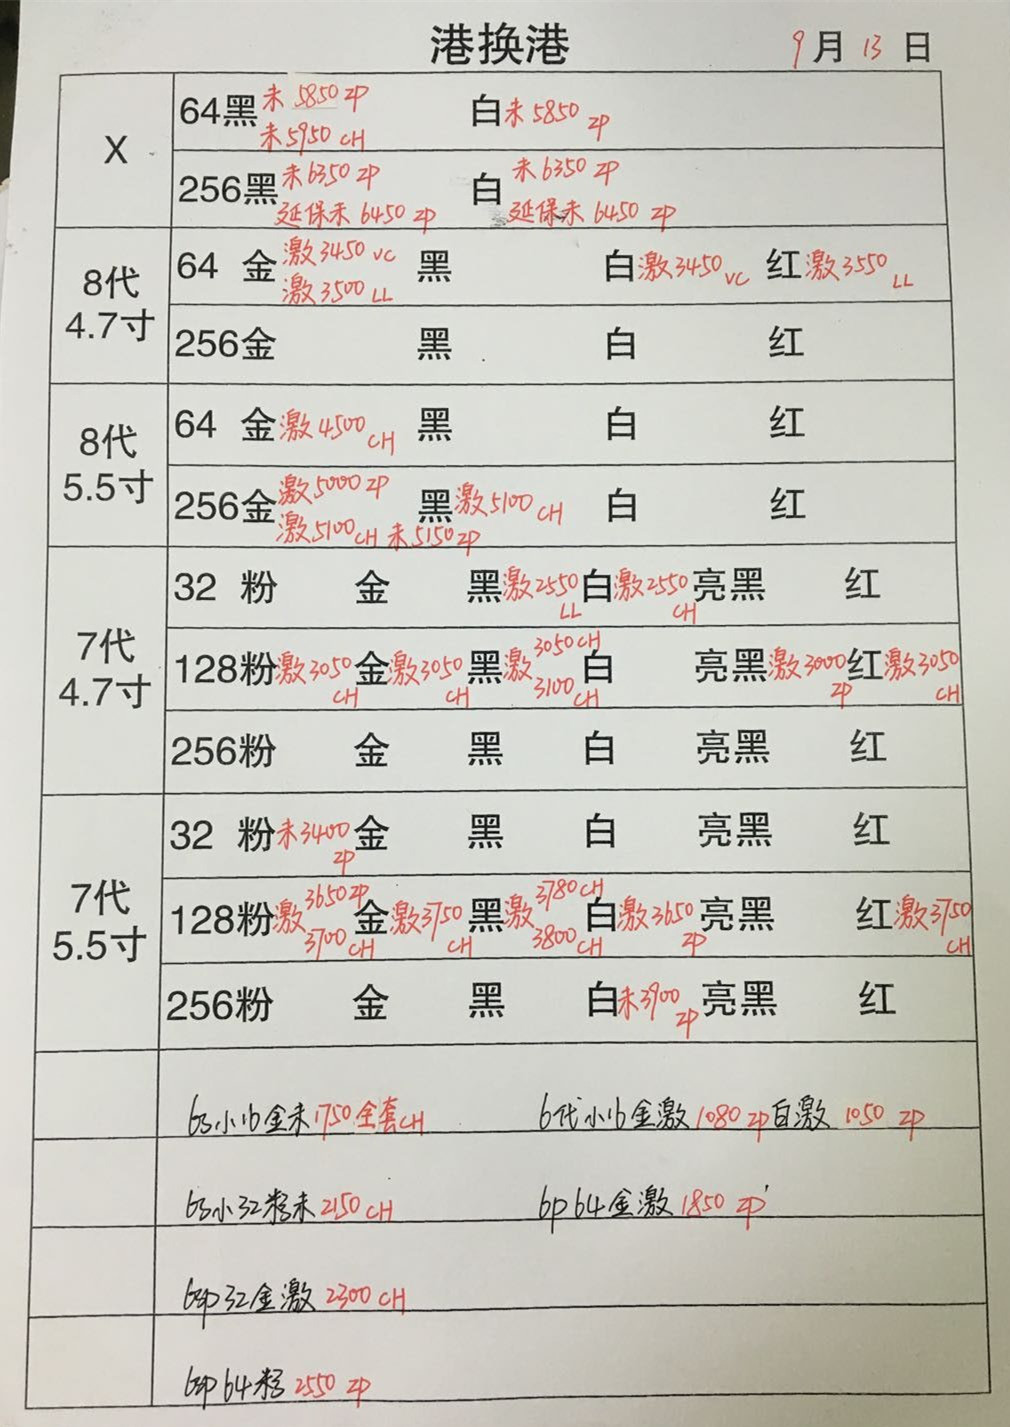 港换港 9月13日
X
64黑 未5850 ZP 白 未5850 ZP
未5950 CH
256黑 未6350 ZP 白 未6350 ZP
延保未6450 ZP 延保未6450 ZP
8代
4.7寸
64 金 激3450 VC 黑 白 激3450 VC 红 激3550 LL
激3500 LL
256金 黑 白 红
8代
5.5寸
64 金 激4500 CH 黑 白 红
256金 激5000 ZP 黑 激5100 CH 白 红
激5100 CH 未5150 ZP
7代
4.7寸
32 粉 金 黑 激2550 LL 白 激2550 CH 亮黑 红
128粉 激3050 CH 金 激3050 CH 黑 激 3050 CH 3100 CH 白 亮黑 激3000 ZP 红 激3050 CH
256粉 金 黑 白 亮黑 红
7代
5.5寸
32 粉 未3400 ZP 金 黑 白 亮黑 红
128粉 激 3650 ZP 3700 CH 金 激3750 CH 黑 激 3780 CH 3800 CH 白 激3650 ZP 亮黑 红 激3750 CH
256粉 金 黑 白 未3900 ZP 亮黑 红
6s小16金未1750全套CH 6代小16金激1080 ZP 白激 1050 ZP
6s小32粉未2150 CH 6p 64金激1850 ZP
6sp 32金激 2300 CH
6sp 64粉 2550 ZP